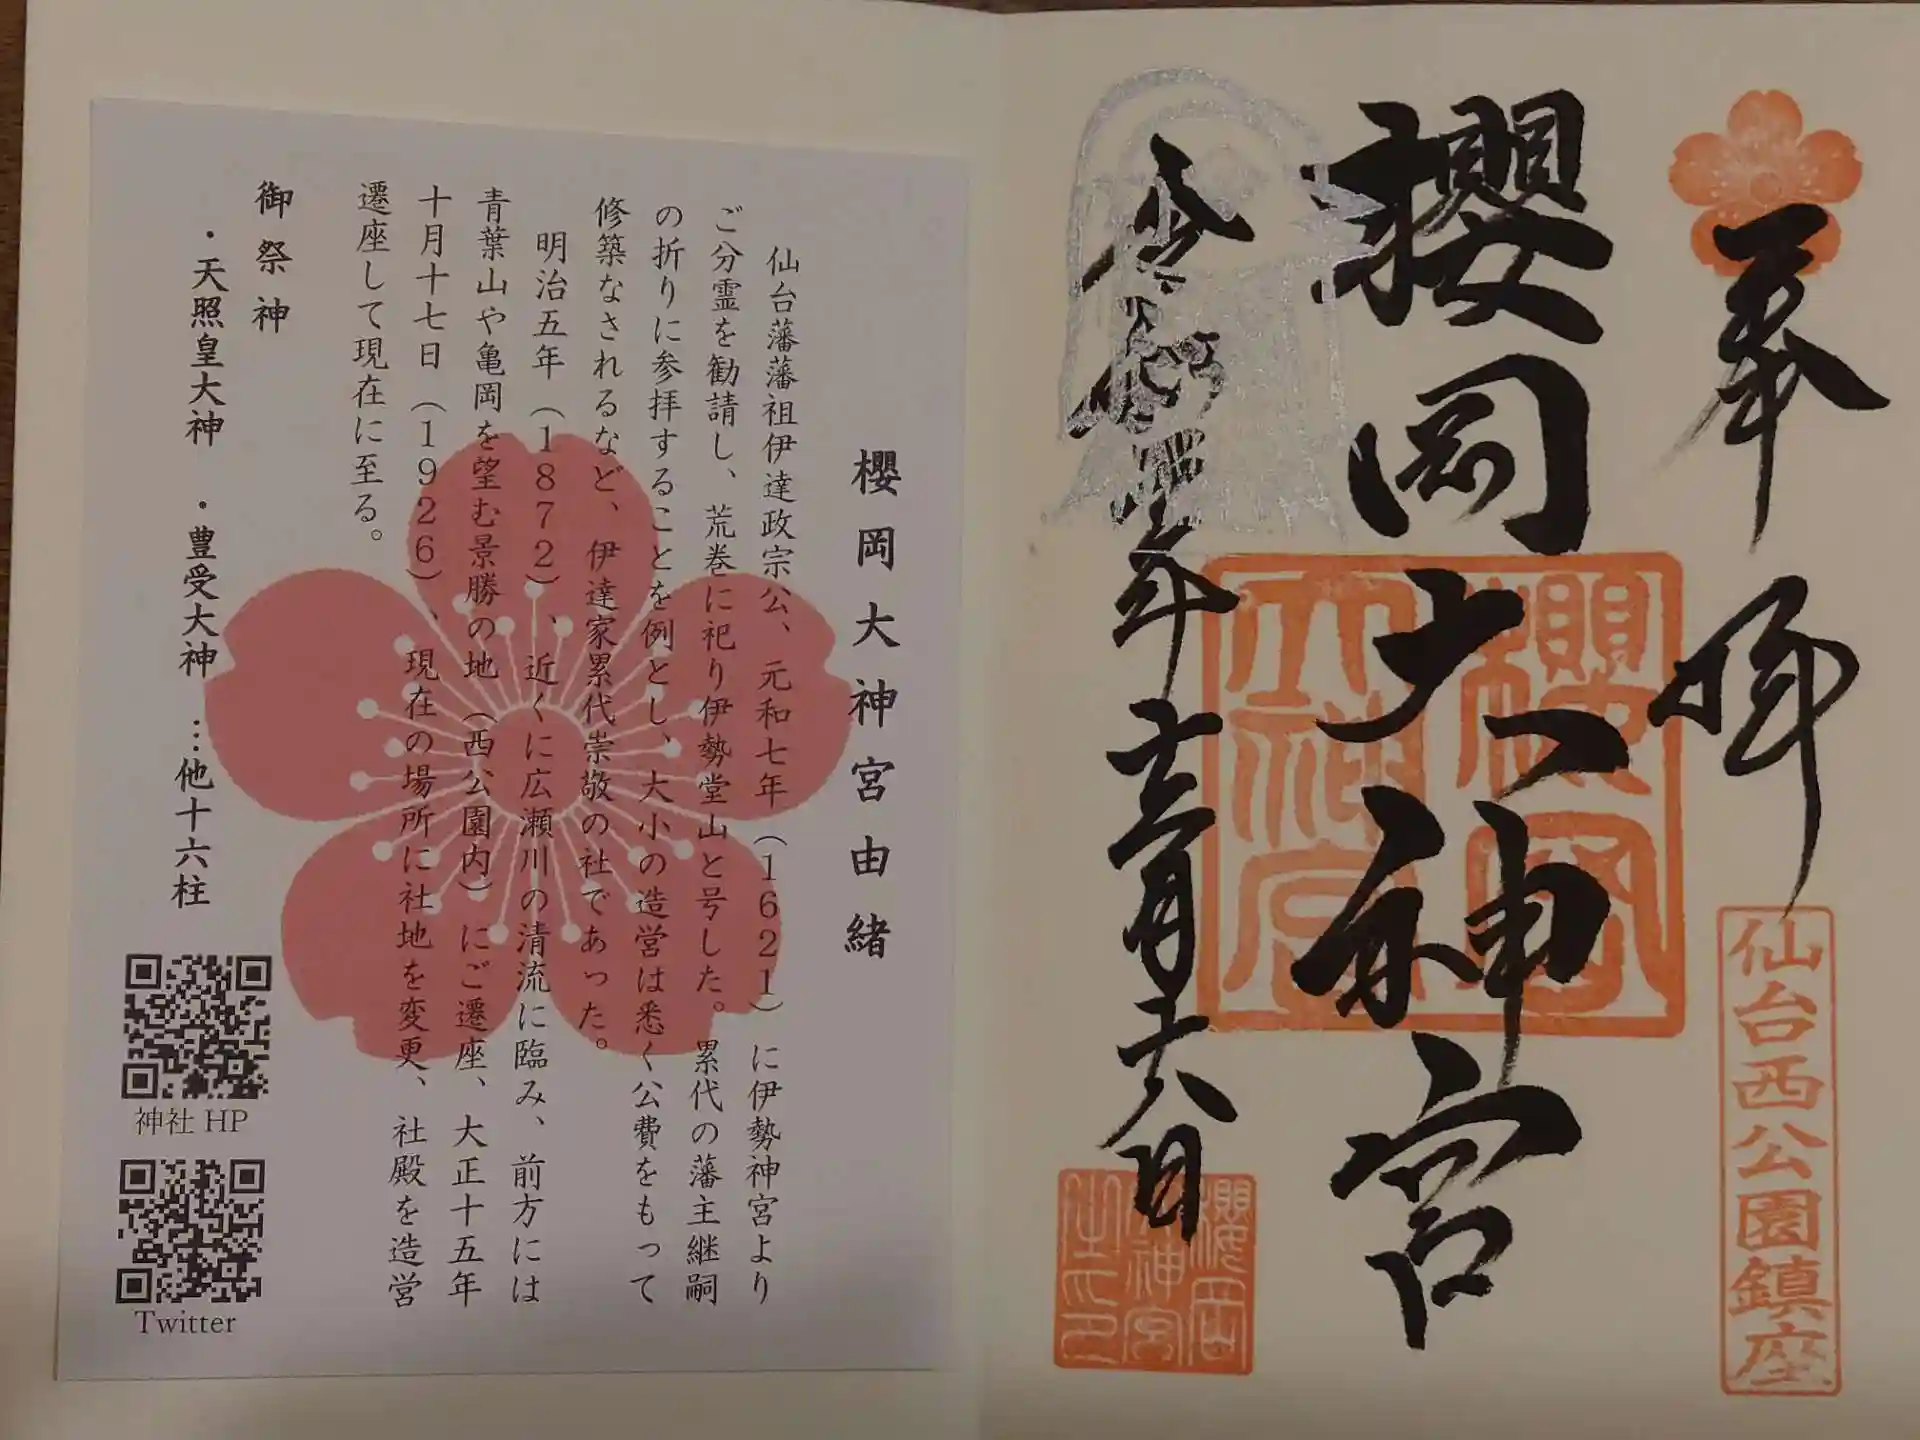 奉拝
櫻岡大神宮
令和四年十二月十八日
仙台西公園鎮座
櫻岡
大神宮
櫻岡
大神宮
之印
櫻岡大神宮由緒
仙台藩藩祖伊達政宗公、元和七年（1621）に伊勢神宮より
ご分霊を勧請し、荒巻に祀り伊勢堂山と号した。累代の藩主継嗣
の折りに参拝することを例とし、大小の造営は悉く公費をもって
修築なされるなど、伊達家累代崇敬の社であった。
明治五年（1872）、近くに広瀬川の清流に臨み、前方には
青葉山や亀岡を望む景勝の地（西公園内）にご遷座、大正十五年
十月十七日（1926）、現在の場所に社地を変更、社殿を造営
遷座して現在に至る。
御祭神
・天照皇大神　・豊受大神　…他十六柱
神社HP
Twitter